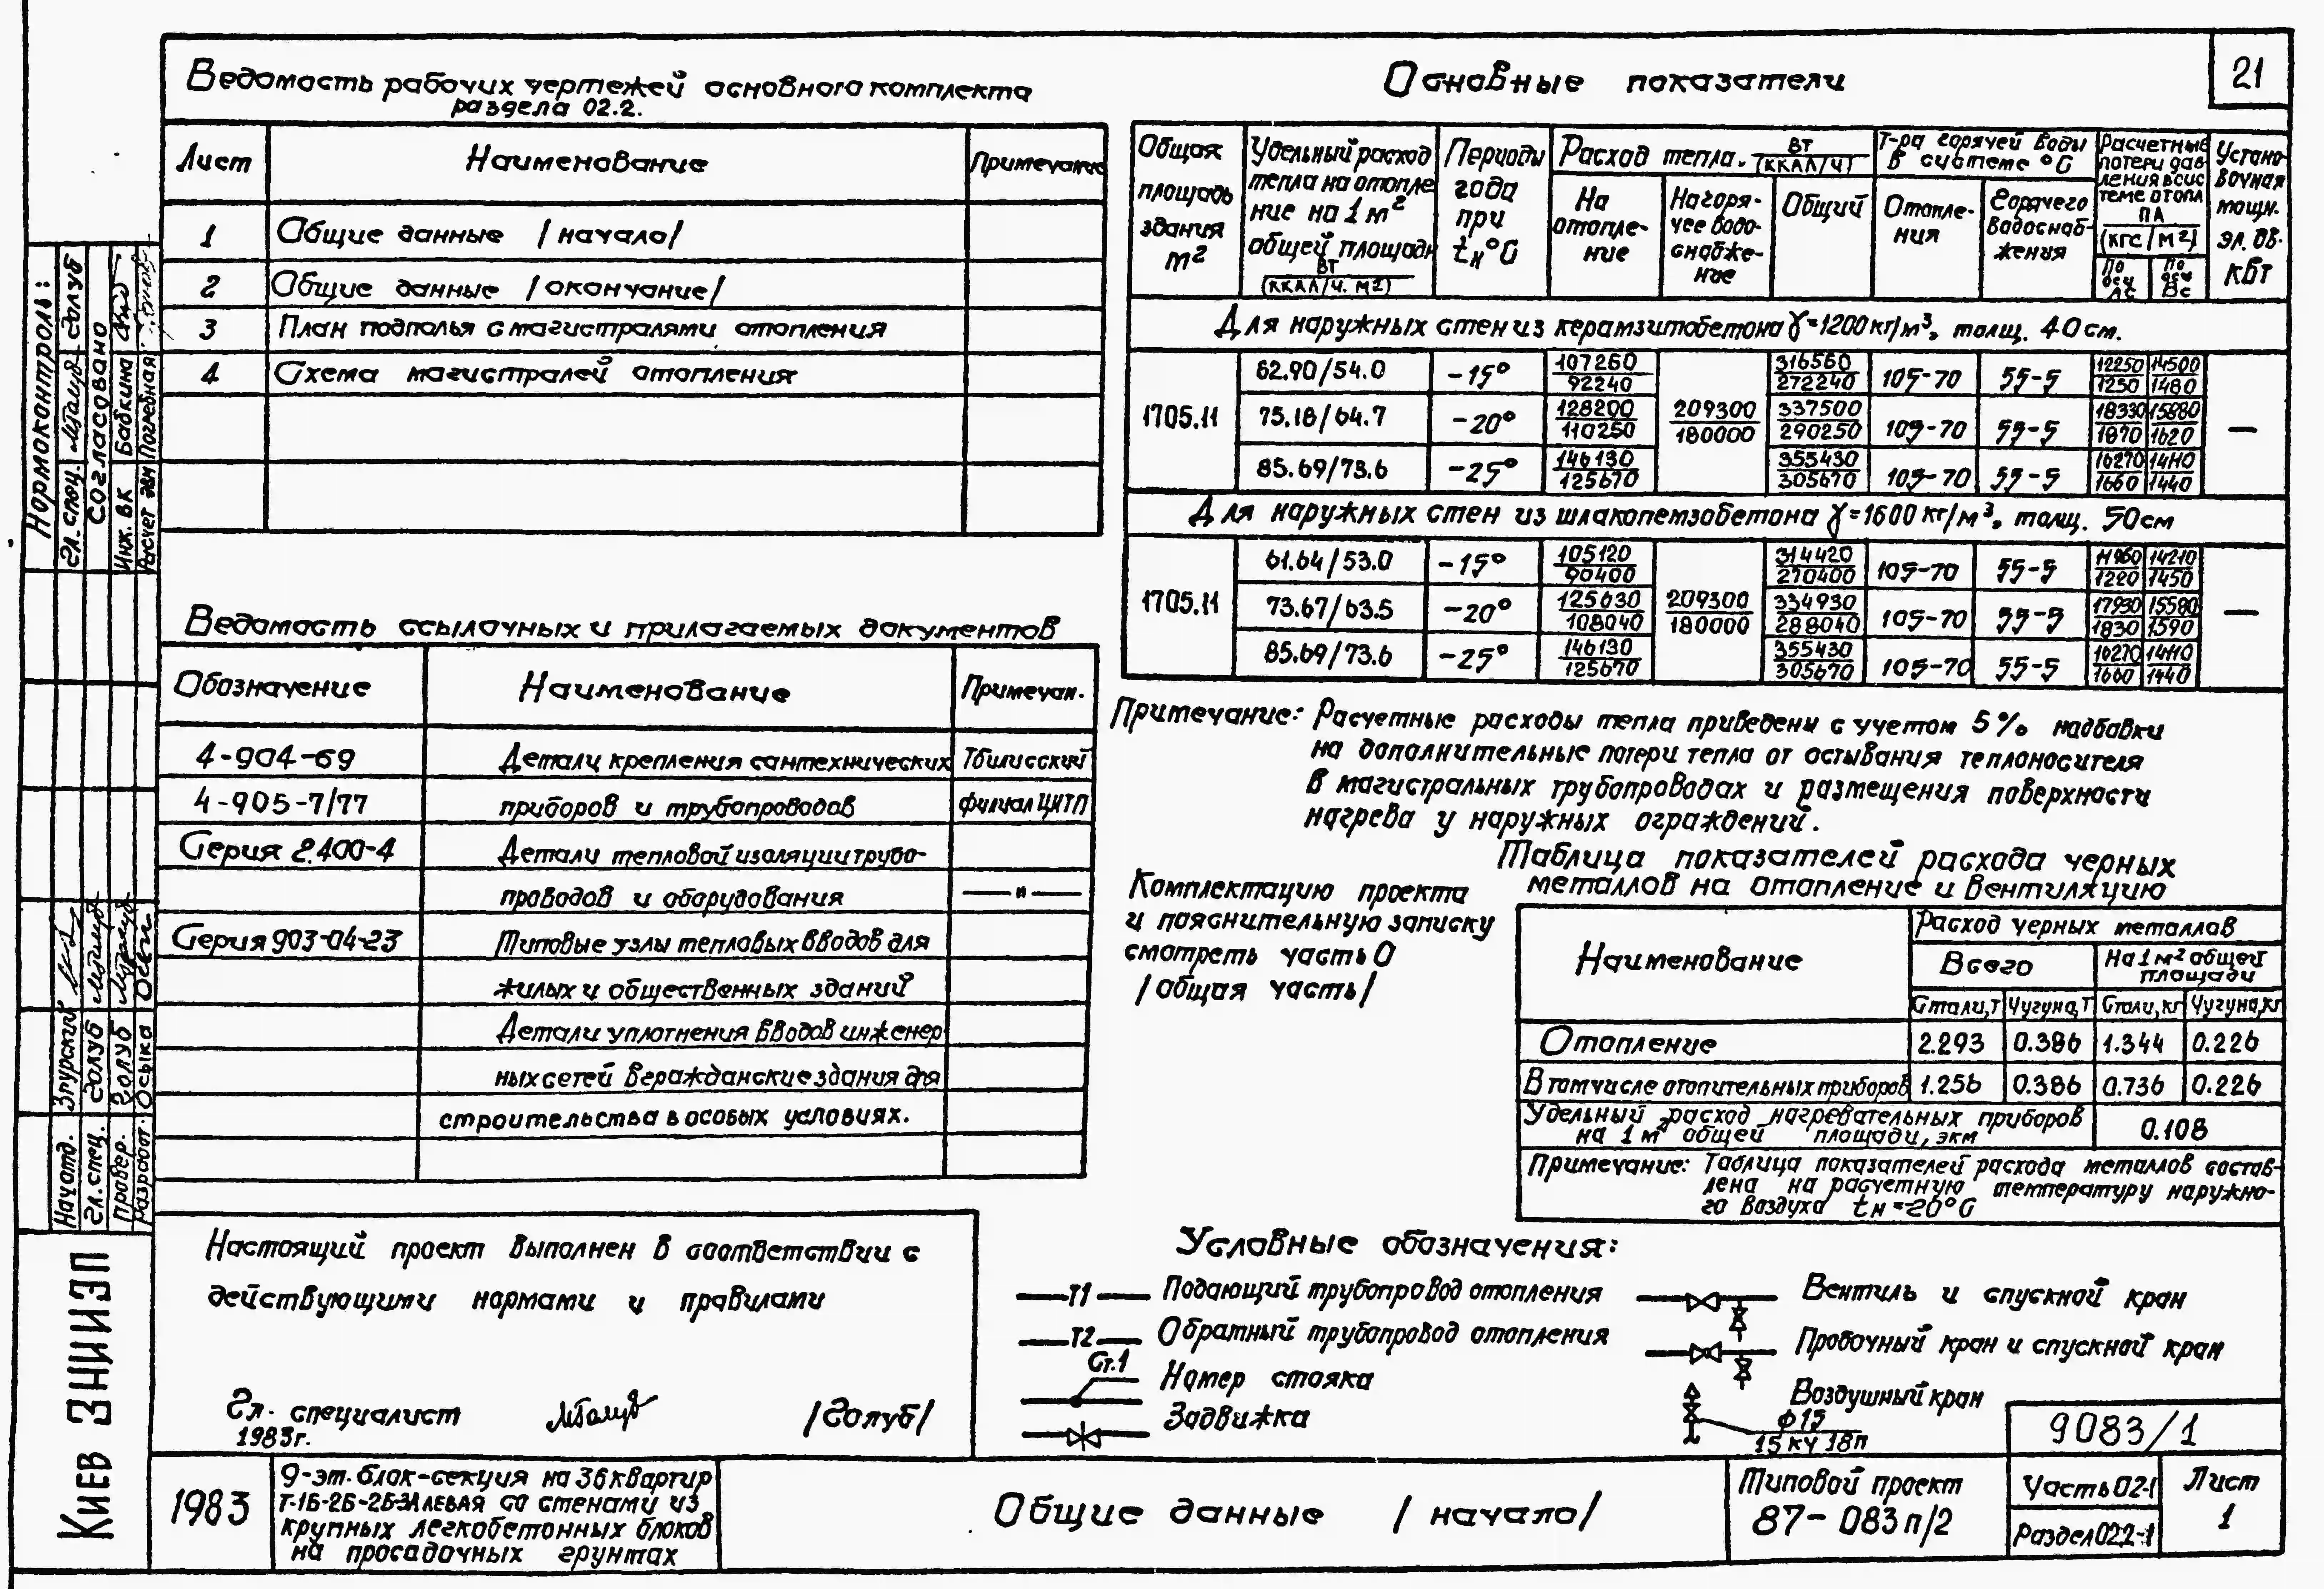 21
Ведомость рабочих чертежей основного комплекта
раздела 02.2.
Лист Наименование Примечание
1 Общие данные /начало/
2 Общие данные /окончание/
3 План подполья с магистралями отопления
4 Схема магистралей отопления
Ведомость ссылочных и прилагаемых документов
Обозначение Наименование Примечан.
4-904-69 Детали крепления сантехнических Тбилисский
4-905-7/77 приборов и трубопроводов филиал ЦИТП
Серия 2.400-4 Детали тепловой изоляции трубо-
проводов и оборудования —"—
Серия 903-04-23 Типовые узлы тепловых вводов для
жилых и общественных зданий
Детали уплотнения вводов инженер
ных сетей в гражданские здания для
строительства в особых условиях.
Настоящий проект выполнен в соответствии с
действующими нормами и правилами
Гл. специалист /Голуб/
1983г.
Основные показатели
Общая площадь здания м²
Удельный расход тепла на отопле ние на 1 м² общей площади ВТ (ККАЛ/Ч. М²)
Периоды года при tн°С
Расход тепла. ВТ (ККАЛ/Ч)
На отопле- ние
На горя- чее водо- снабже- ние
Общий
Т-ра горячей воды в системе °С
Отопле- ния
Горячего водоснаб- жения
Расчетные потери дав ления в сис теме отопл ПА (КГС/М²)
По оси Лс
По оси Вс
Устано- вочная мощн. эл. дв. кВт
Для наружных стен из керамзитобетона γ=1200кг/м³, толщ. 40см.
1705.11
62.90/54.0 -15° 107260 92240 316560 272240 105-70 55-5 12250 1250 14500 1480
75.18/64.7 -20° 128200 110250 209300 180000 337500 290250 105-70 55-5 18330 1870 15880 1620 —
85.69/73.6 -25° 146130 125670 355430 305670 105-70 55-5 16270 1660 14110 1440
Для наружных стен из шлакопемзобетона γ=1600кг/м³, толщ. 50см
1705.11
61.64/53.0 -15° 105120 90400 314420 270400 105-70 55-5 11960 1220 14210 1450
73.67/63.5 -20° 125630 108040 209300 180000 334930 288040 105-70 55-5 17930 1830 15580 1590 —
85.69/73.6 -25° 146130 125670 355430 305670 105-70 55-5 16270 1660 14110 1440
Примечание: Расчетные расходы тепла приведены с учетом 5% надбавки
на дополнительные потери тепла от остывания теплоносителя
в магистральных трубопроводах и размещения поверхности
нагрева у наружных ограждений.
Комплектацию проекта
и пояснительную записку
смотреть часть 0
/общая часть/
Таблица показателей расхода черных
металлов на отопление и вентиляцию
Наименование
Расход черных металлов
Всего На 1 м² общей площади
Стали,т Чугуна,т Стали,кг Чугуна,кг
Отопление 2.293 0.386 1.344 0.226
В том числе отопительных приборов 1.256 0.386 0.736 0.226
Удельный расход нагревательных приборов
на 1 м² общей площади, экм 0.108
Примечание: Таблица показателей расхода металлов состав-
лена на расчетную температуру наружно-
го воздуха tн=-20°С
Условные обозначения:
Т1 Подающий трубопровод отопления
Т2 Обратный трубопровод отопления
Ст.1 Номер стояка
Задвижка
Вентиль и спускной кран
Пробочный кран и спускной кран
Воздушный кран
ф15
15 кч 18п
9083/1
1983
9-эт. блок-секция на 36 квартир
Т-1Б-2Б-2Б-3А левая со стенами из
крупных легкобетонных блоков
на просадочных грунтах
Общие данные /начало/
Типовой проект
87-083п/2
Часть 02-1
Раздел 02.2-1
Лист
1
Нормоконтроль:
Гл. спец. Голуб
Согласовано
Инж. ВК Бабкина
Расчет эвм Погребная
Нач отд. Згурский
Гл. спец. Голуб
Провер. Голуб
Разработ. Осыка
Киев ЗНИИЭП